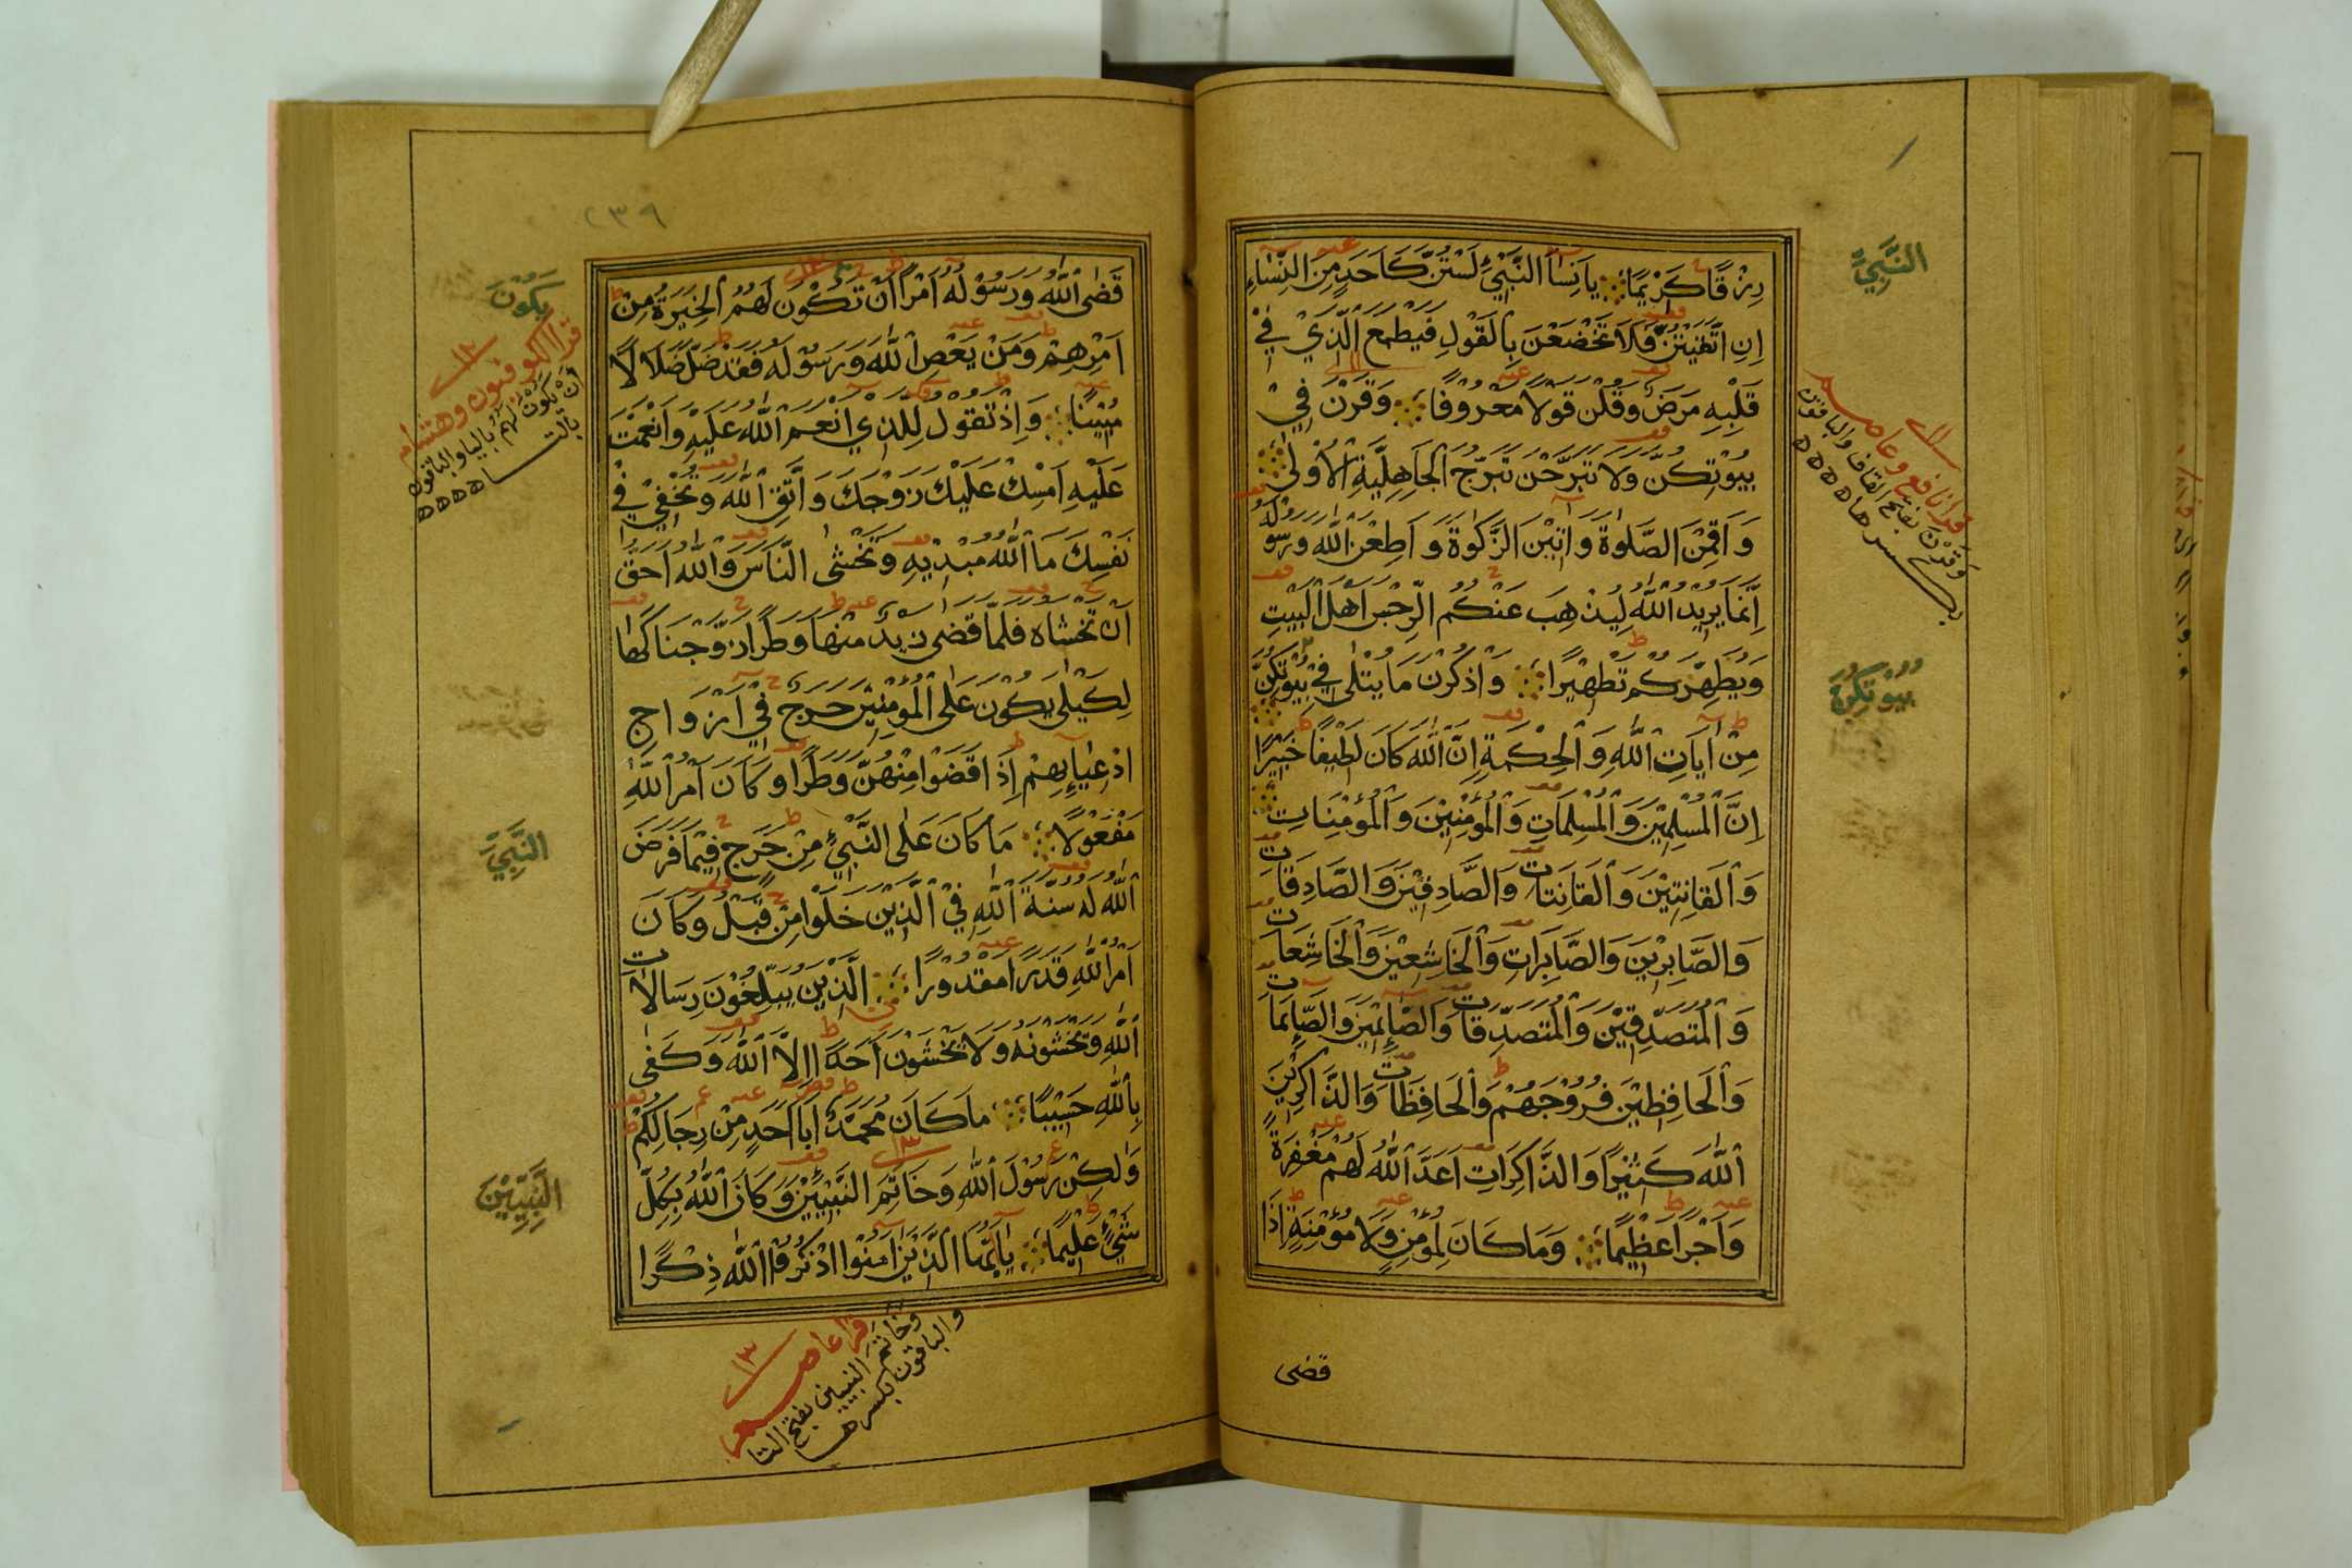 رِزْقًا كَرِيْمًا يَانِسَآءَ النَّبِيِّ لَسْتُنَّ كَاَحَدٍ مِنَ النِّسَاءِ
اِنِ اتَّقَيْتُنَّ فَلَا تَخْضَعْنَ بِالْقَوْلِ فَيَطْمَعَ الَّذِيْ فِيْ
قَلْبِهٖ مَرَضٌ وَقُلْنَ قَوْلًا مَعْرُوْفًا وَقَرْنَ فِيْ
بُيُوْتِكُنَّ وَلَا تَبَرَّجْنَ تَبَرُّجَ الْجَاهِلِيَّةِ الْاُوْلٰى
وَاَقِمْنَ الصَّلٰوةَ وَاٰتِيْنَ الزَّكٰوةَ وَاَطِعْنَ اللّٰهَ وَرَسُوْلَهُ
اِنَّمَا يُرِيْدُ اللّٰهُ لِيُذْهِبَ عَنْكُمُ الرِّجْسَ اَهْلَ الْبَيْتِ
وَيُطَهِّرَكُمْ تَطْهِيْرًا وَاذْكُرْنَ مَا يُتْلٰى فِيْ بُيُوْتِكُنَّ
مِنْ اٰيَاتِ اللّٰهِ وَالْحِكْمَةِ اِنَّ اللّٰهَ كَانَ لَطِيْفًا خَبِيْرًا
اِنَّ الْمُسْلِمِيْنَ وَالْمُسْلِمَاتِ وَالْمُؤْمِنِيْنَ وَالْمُؤْمِنَاتِ
وَالْقَانِتِيْنَ وَالْقَانِتَاتِ وَالصَّادِقِيْنَ وَالصَّادِقَاتِ
وَالصَّابِرِيْنَ وَالصَّابِرَاتِ وَالْخَاشِعِيْنَ وَالْخَاشِعَاتِ
وَالْمُتَصَدِّقِيْنَ وَالْمُتَصَدِّقَاتِ وَالصَّائِمِيْنَ وَالصَّائِمَاتِ
وَالْحَافِظِيْنَ فُرُوْجَهُمْ وَالْحَافِظَاتِ وَالذَّاكِرِيْنَ
اللّٰهَ كَثِيْرًا وَالذَّاكِرَاتِ اَعَدَّ اللّٰهُ لَهُمْ مَغْفِرَةً
وَاَجْرًا عَظِيْمًا وَمَا كَانَ لِمُؤْمِنٍ وَلَا مُؤْمِنَةٍ اِذَا
قضى
النَّبِيِّ
قرا نافع وعاصم
وقَرْنَ بفتح القاف والباقون
بكسرها
بُيُوْتِكُنَّ
٢٣٩
قَضَى اللّٰهُ وَرَسُوْلُهُ اَمْرًا اَنْ تَكُوْنَ لَهُمُ الْخِيَرَةُ مِنْ
اَمْرِهِمْ وَمَنْ يَعْصِ اللّٰهَ وَرَسُوْلَهُ فَقَدْ ضَلَّ ضَلَالًا
مُبِيْنًا وَاِذْ تَقُوْلُ لِلَّذِيْ اَنْعَمَ اللّٰهُ عَلَيْهِ وَاَنْعَمْتَ
عَلَيْهِ اَمْسِكْ عَلَيْكَ زَوْجَكَ وَاتَّقِ اللّٰهَ وَتُخْفِيْ فِيْ
نَفْسِكَ مَا اللّٰهُ مُبْدِيْهِ وَتَخْشَى النَّاسَ وَاللّٰهُ اَحَقُّ
اَنْ تَخْشَاهُ فَلَمَّا قَضٰى زَيْدٌ مِنْهَا وَطَرًا زَوَّجْنَاكَهَا
لِكَيْلَا يَكُوْنَ عَلَى الْمُؤْمِنِيْنَ حَرَجٌ فِيْ اَزْوَاجِ
اَدْعِيَائِهِمْ اِذَا قَضَوْا مِنْهُنَّ وَطَرًا وَكَانَ اَمْرُ اللّٰهِ
مَفْعُوْلًا مَا كَانَ عَلَى النَّبِيِّ مِنْ حَرَجٍ فِيْمَا فَرَضَ
اللّٰهُ لَهُ سُنَّةَ اللّٰهِ فِيْ الَّذِيْنَ خَلَوْا مِنْ قَبْلُ وَكَانَ
اَمْرُ اللّٰهِ قَدَرًا مَقْدُوْرًا الَّذِيْنَ يُبَلِّغُوْنَ رِسَالَاتِ
اللّٰهِ وَيَخْشَوْنَهُ وَلَا يَخْشَوْنَ اَحَدًا اِلَّا اللّٰهَ وَكَفٰى
بِاللّٰهِ حَسِيْبًا مَا كَانَ مُحَمَّدٌ اَبَا اَحَدٍ مِنْ رِجَالِكُمْ
وَلٰكِنْ رَسُوْلَ اللّٰهِ وَخَاتَمَ النَّبِيِّيْنَ وَكَانَ اللّٰهُ بِكُلِّ
شَيْءٍ عَلِيْمًا يَااَيُّهَا الَّذِيْنَ اٰمَنُوا اذْكُرُوا اللّٰهَ ذِكْرًا
يَكُوْنَ
قرا الكوفيون وهشام
ان يكون لهم باليا والباقون
بالتا
النَّبِيِّ
النَّبِيِّيْنَ
قرا عاصم
وخاتَم النبيين بفتح التا
والباقون بكسرها